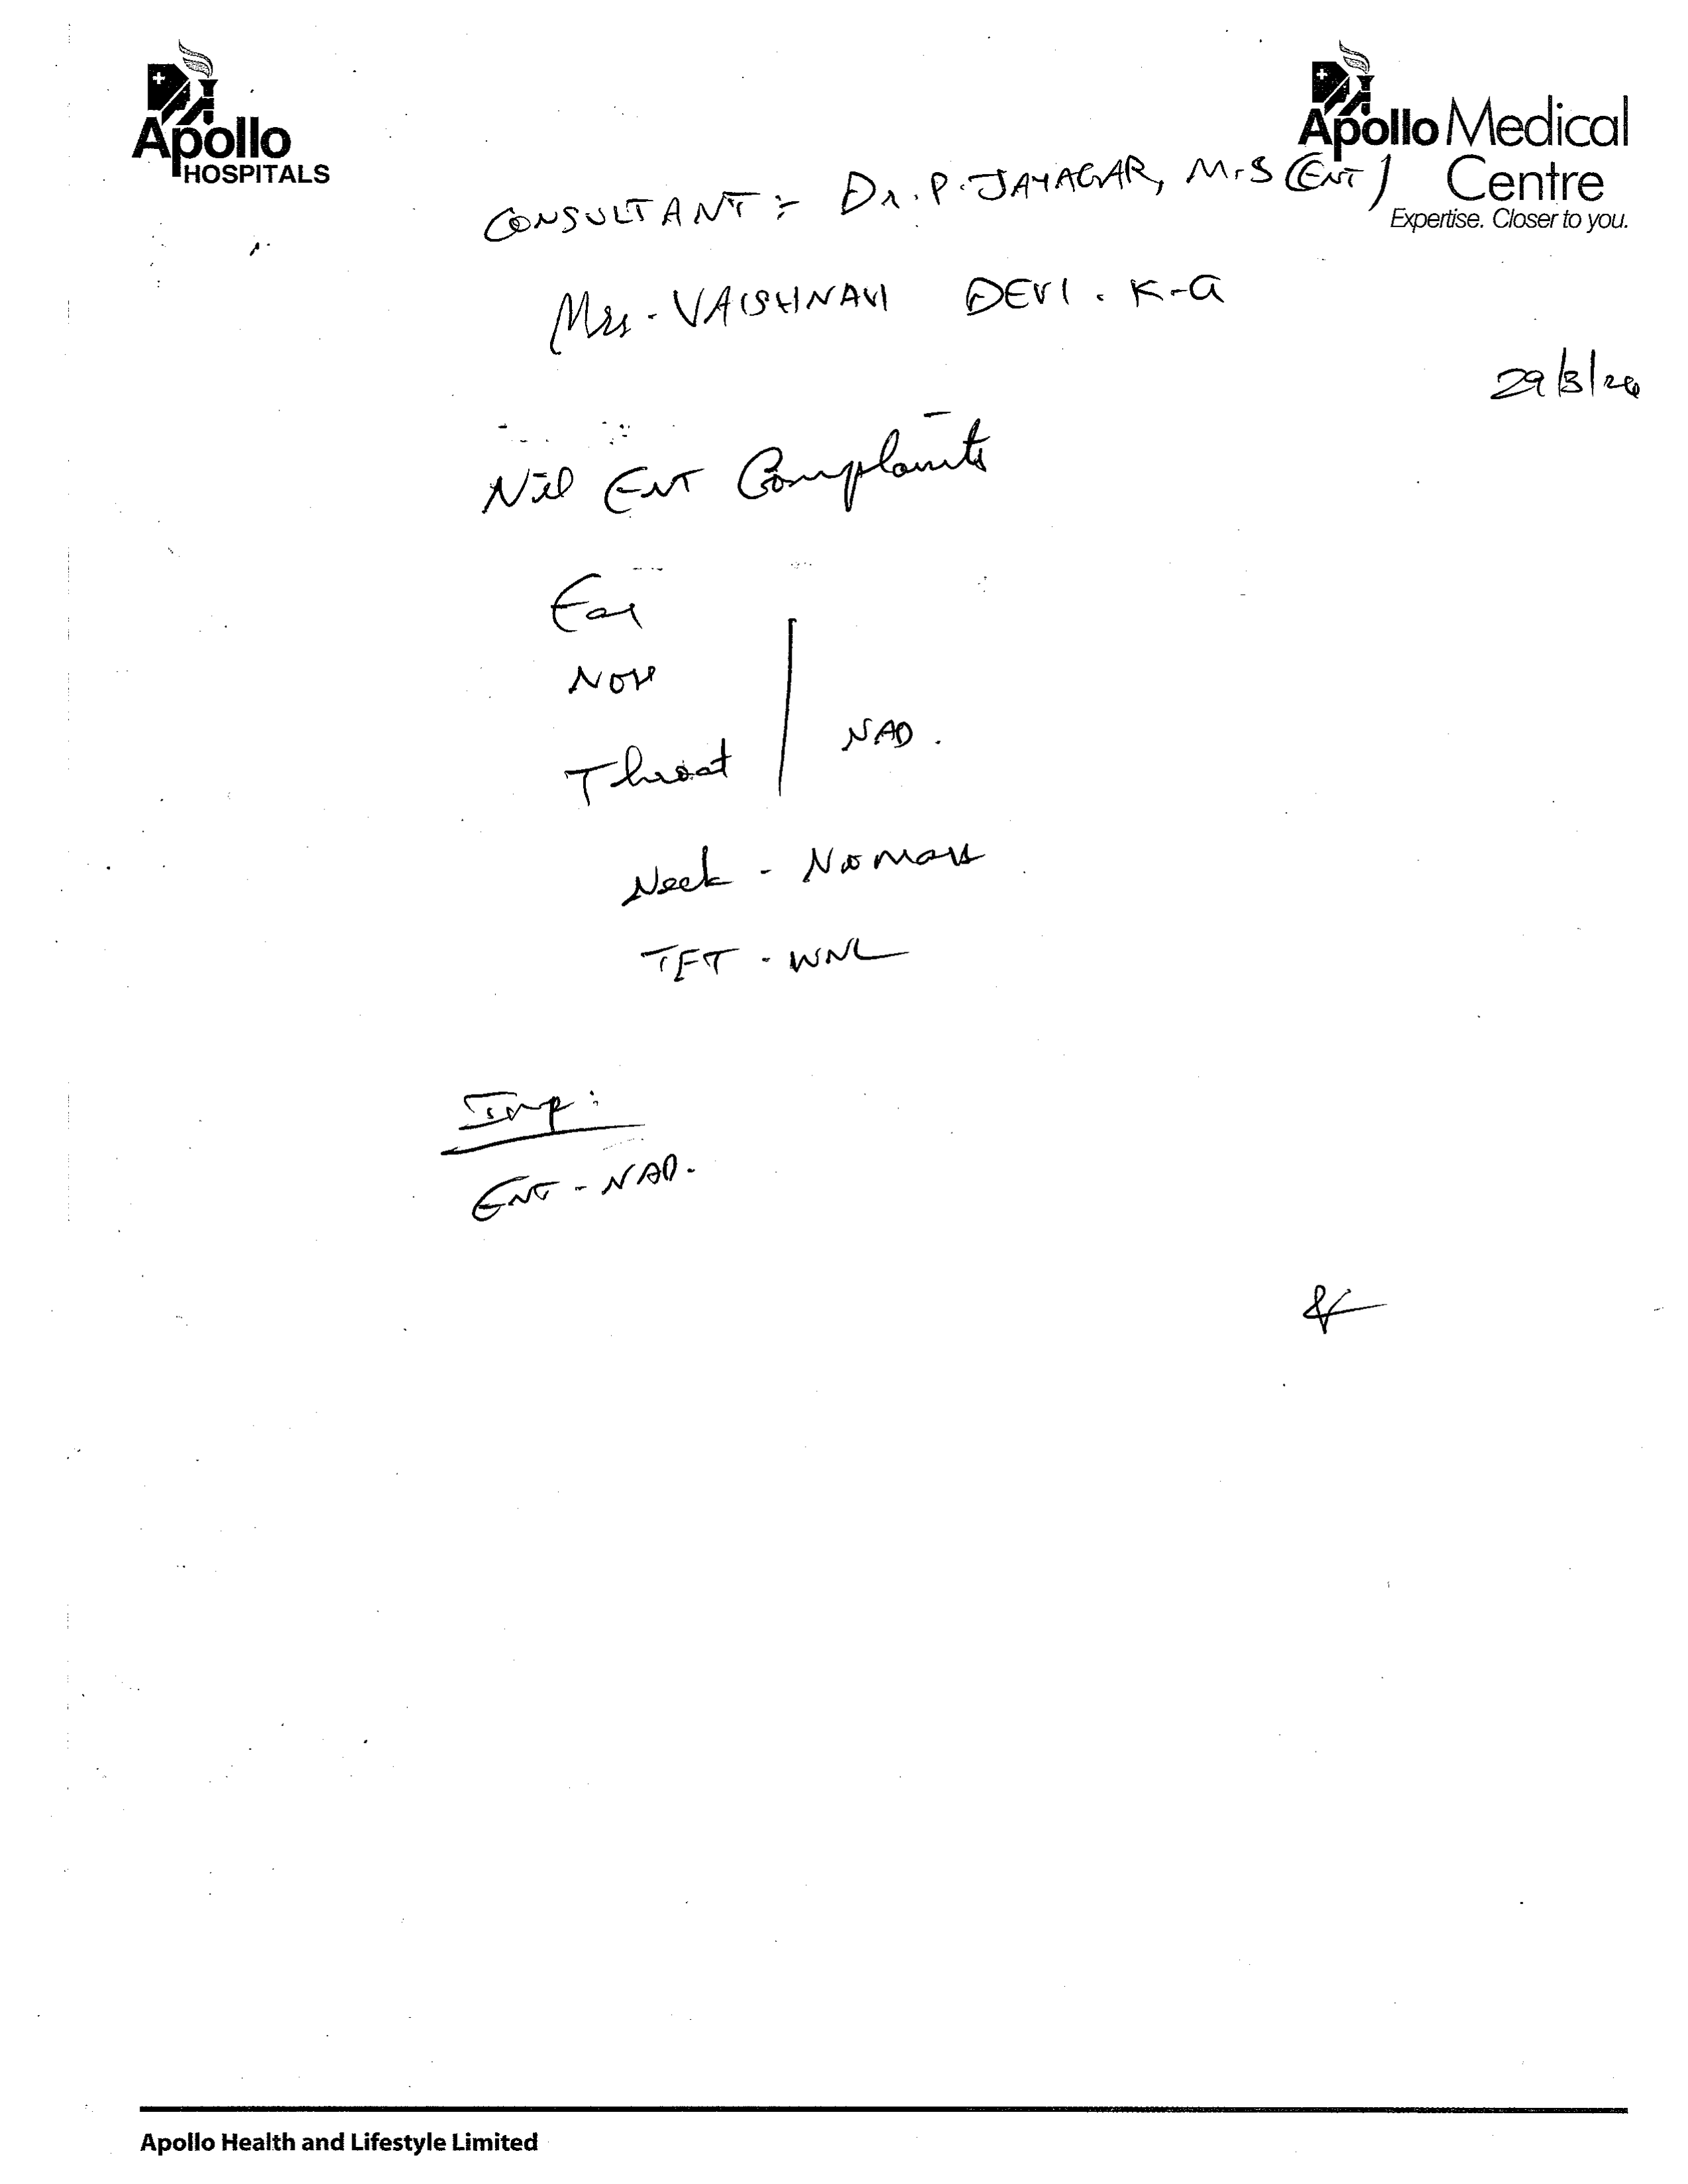 Apollo
HOSPITALS
Apollo Medical
Centre
Expertise. Closer to you.
CONSULTANT:- Dr. P. JAYAGAR, M.S (ENT)
Mrs. VAISHNAVI DEVI. K-G
29/3/24
Nil ENT Complaints
Ear
Nose
Throat
NAD.
Neck - No mass
TFT - WNL
Imp:
ENT - NAD.
Apollo Health and Lifestyle Limited